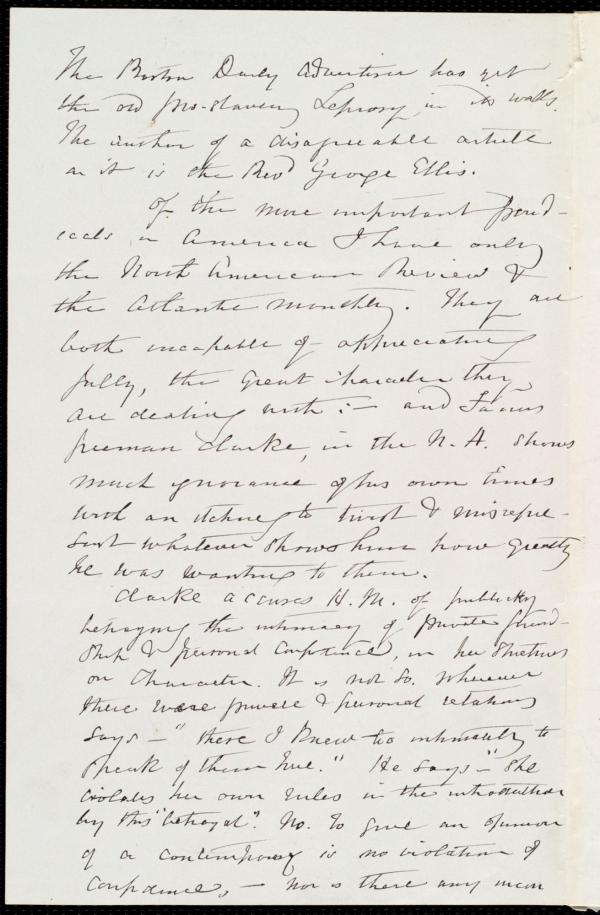 The Boston Daily Advertiser has yet
the old pro-slavery Leprosy in its walls.
The author of a disagreeable article
in it is the Revd George Ellis.
Of the more important period-
icals in America I have only
the North American Review &
the Atlantic Monthly. They are
both incapable of appreciating
fully, the great character they
are dealing with :- and James
freeman Clarke, in the N. A. shows
much ignorance of his own times
with an itching to twist & misrepre-
sent whatever shows him how greatly
he was wanting to them.
Clarke accuses H. M. of publickly
betraying the intimacy of private friend-
ship & personal confidence, in her strictures
on character. It is not so. Wherever
there were private & personal relations
says - "these I knew too intimately to
speak of them here." He says - "She
violates her own rules in the introduction
by this "betrayal". No. To give an opinion
of a contemporary is no violation of
confidence, - nor is there any mean